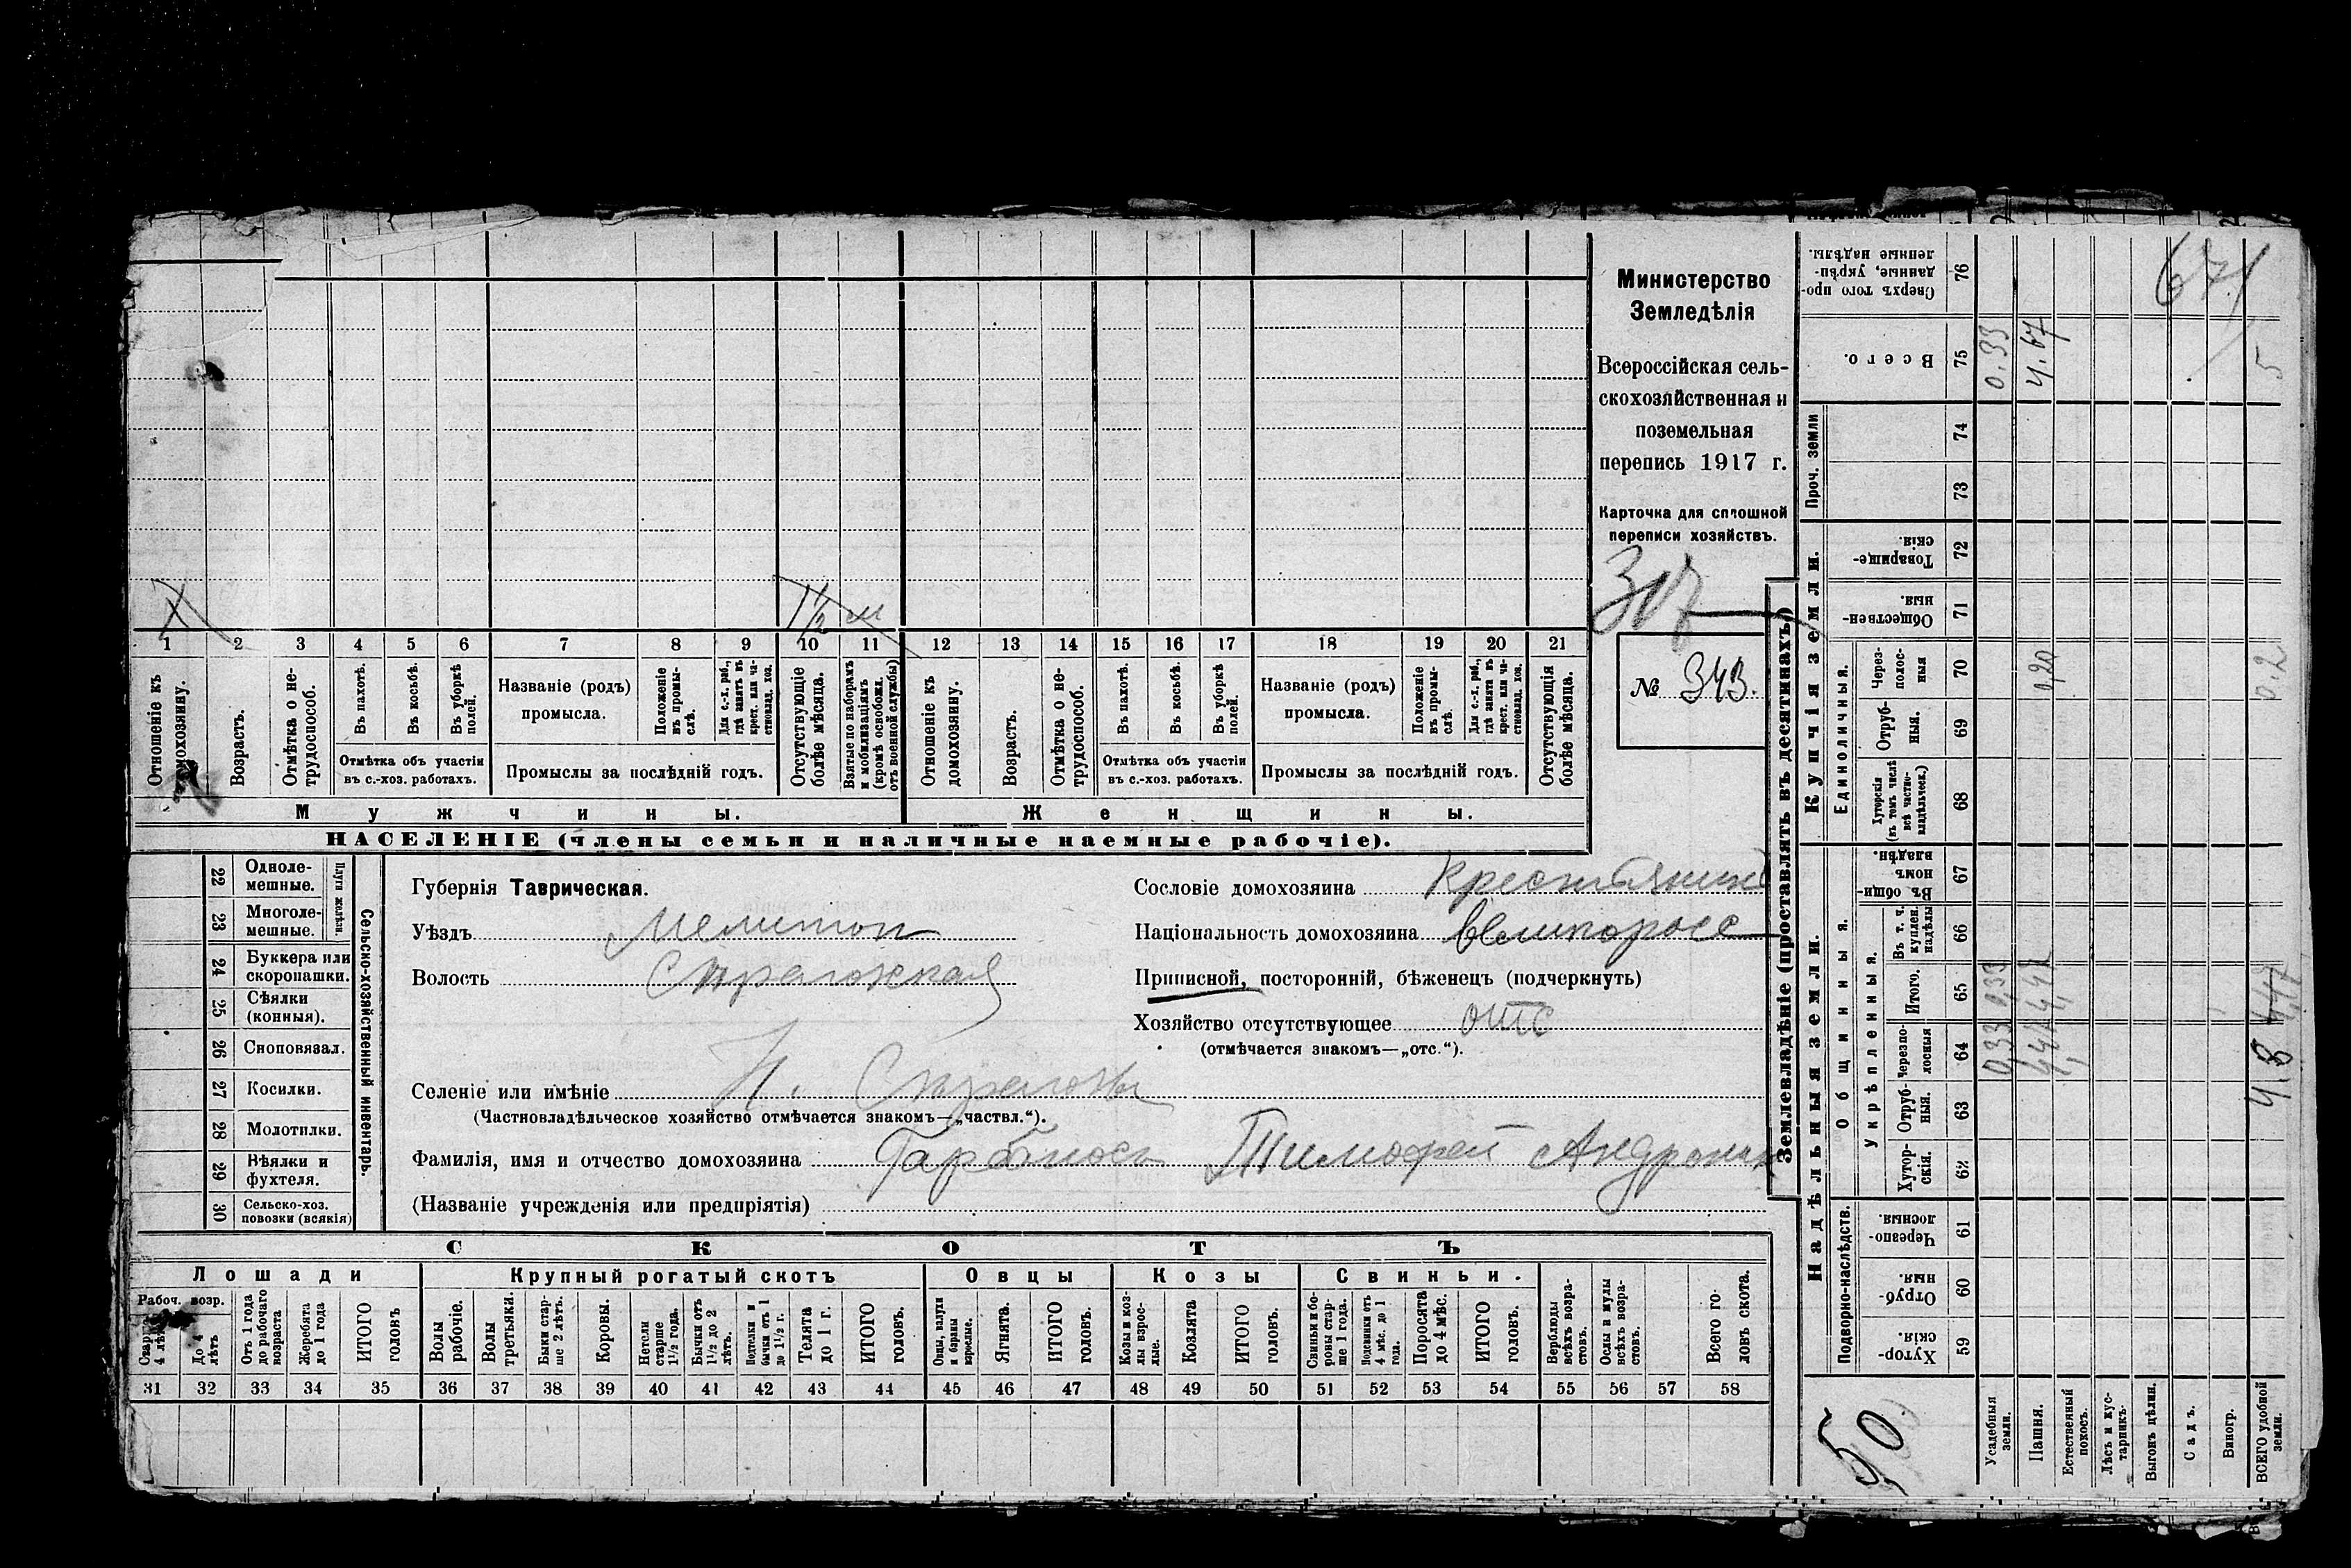 Министерство
Земледѣлія
Всероссійская сель-
скохозяйственная и
поземельная
перепись 1917 г.
Карточка для сплошной
переписи хозяйствъ.
317
№ 343.
1 2 3 4 5 6 7 8 9 10 11 12 13 14 15 16 17 18 19 20 21
Отношеніе къ домохозяину.
Возрастъ.
Отмѣтка о не-трудоспособ.
Въ пахотѣ.
Въ косьбѣ.
Въ уборкѣ полей.
Отмѣтка объ участіи
въ с.-хоз. работахъ.
Названіе (родъ)
промысла.
Положеніе въ промы-слѣ.
Для с.-х. раб., гдѣ занятъ въ крест. или ча-стновлад. хоз.
Промыслы за послѣдній годъ.
Отсутствующіе болѣе мѣсяца.
Взятые по наборамъ и мобилизаціямъ (кромѣ освобожд. отъ военной службы)
Отношеніе къ домохозяину.
Возрастъ.
Отмѣтка о не-трудоспособ.
Въ пахотѣ.
Въ косьбѣ.
Въ уборкѣ полей.
Отмѣтка объ участіи
въ с.-хоз. работахъ.
Названіе (родъ)
промысла.
Положеніе въ промы-слѣ.
Для с.-х. раб., гдѣ занята въ крест. или ча-стновлад. хоз.
Промыслы за послѣдній годъ.
Отсутствующія болѣе мѣсяца.
Мужчины.
Женщины.
НАСЕЛЕНІЕ (члены семьи и наличные наемные рабочіе).
22 Одноле-мешные.
23 Многоле-мешные.
Плуги желѣзн.
24 Буккера или скоропашки.
25 Сѣялки (конныя).
26 Сноповязал.
27 Косилки.
28 Молотилки.
29 Вѣялки и фухтеля.
30 Сельско-хоз. повозки (всякія)
Сельско-хозяйственный инвентарь.
Губернія Таврическая.
Уѣздъ Мелитоп
Волость
Селеніе или имѣніе
(Частновладѣльческое хозяйство отмѣчается знакомъ—„частвл.“).
Фамилія, имя и отчество домохозяина Тимофей
(Названіе учрежденія или предпріятія)
Сословіе домохозяина крестьянинъ
Національность домохозяина великоросс
Приписной, посторонній, бѣженецъ (подчеркнуть)
Хозяйство отсутствующее отс
(отмѣчается знакомъ—„отс.“).
СКОТЪ
Лошади
Крупный рогатый скотъ
Овцы
Козы
Свиньи.
Рабоч. возр.
До 4 лѣтъ
Отъ 1 года до рабочаго возраста
Жеребята до 1 года
ИТОГО головъ
Волы рабочіе.
Волы третьяки.
Быки стар-ше 2 лѣтъ.
Коровы.
Нетели старше 1½ года.
Бычки отъ 1½ до 2 лѣтъ.
Подтелки и бычки отъ 1 до 1½ г.
Телята до 1 г.
ИТОГО головъ.
Овцы, валухи и бараны взрослые.
Ягнята.
ИТОГО головъ.
Козы и коз-лы взрос-лые.
Козлята
ИТОГО головъ.
Свиньи и бо-ровы стар-ше 1 года.
Подсвинки отъ 4 мѣс. до 1 года.
Поросята до 4 мѣс.
ИТОГО головъ.
Верблюды всѣхъ возра-стовъ.
Ослы и мулы всѣхъ возра-стовъ.
Всего го-ловъ скота.
31 32 33 34 35 36 37 38 39 40 41 42 43 44 45 46 47 48 49 50 51 52 53 54 55 56 57 58
Землевладѣніе (проставлять въ десятинахъ)
Надѣльныя земли.
Купчія земли.
Проч. земли
Подворно-наслѣдств.
Общинныя.
Укрѣпленныя.
Единоличныя.
Сверхъ того про-данные, укрѣп-ленные надѣлы. 76
Всего. 75 0.33 4.67 5
74
73
Товарище-скія. 72
Обществен-ныя. 71
Через-полос-ныя 70 0,20 0.2
Отруб-ныя. 69
Хуторскія (въ томъ числѣ всѣ частно-владѣльческ.) 68
Въ общи-номъ владѣн. 67
Въ т. ч. куплен. надѣлы 66
Итого. 65 0,33
Черезпо-лосныя 64 0,33 4.8
Отруб-ныя. 63
Хутор-скія. 62
Черезпо-лосныя. 61
Отруб-ныя. 60
Хутор-скія. 59
Усадебныя земли.
Пашня.
Естественный покосъ.
Лѣсъ и кус-тарникъ.
Выгонъ цѣлин.
Садъ.
Виногр.
ВСЕГО удобной земли.
67
50.